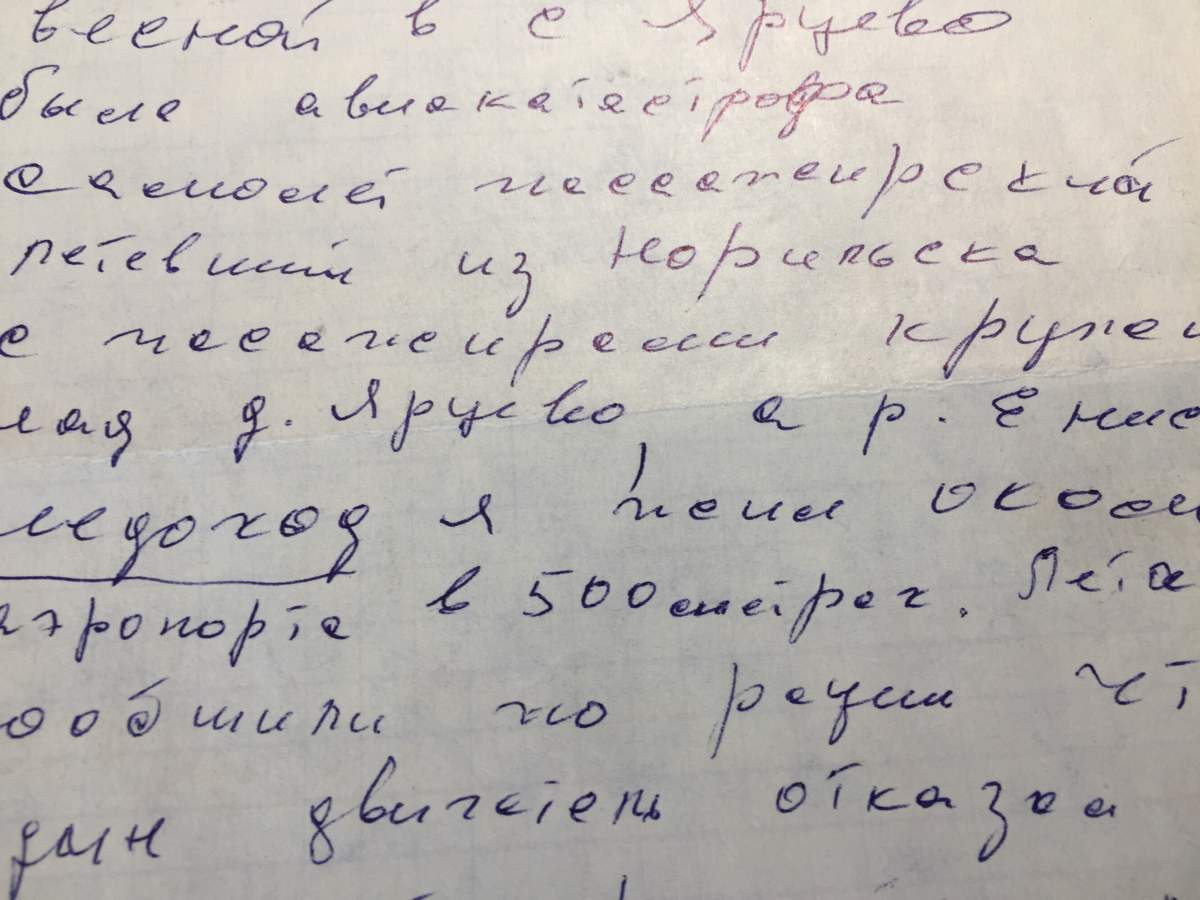 весной в с Ярцево
была авиакатастрофа
самолёт пассажирский
летевший из Норильска
с пассажирами кружи
над д. Ярцево а р. Енис
ледоход я жил окол
аэропорта в 500 метрах. Лета
ообшили по рации чт
дин двигатель отказа